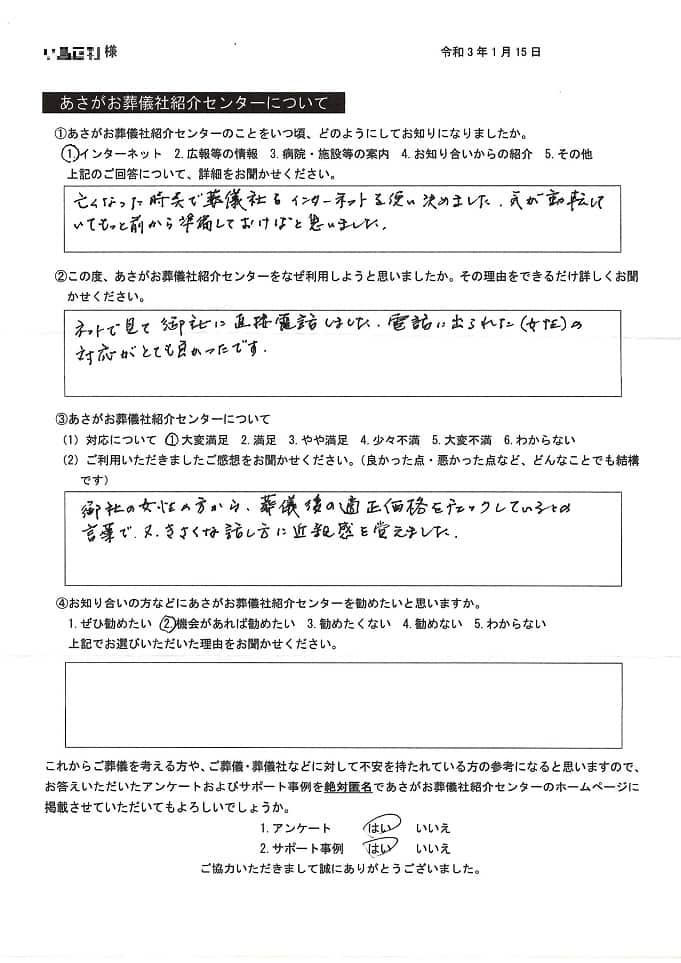 様
令和3年1月15日
あさがお葬儀社紹介センターについて
①あさがお葬儀社紹介センターのことをいつ頃、どのようにしてお知りになりましたか。
1.インターネット 2.広報等の情報 3.病院・施設等の案内 4.お知り合いからの紹介 5.その他
上記のご回答について、詳細をお聞かせください。
亡くなった時点で葬儀社をインターネットを使い決めました。気が動転して
いてもっと前から準備しておけばと思いました。
②この度、あさがお葬儀社紹介センターをなぜ利用しようと思いましたか。その理由をできるだけ詳しくお聞
かせください。
ネットで見て御社に直接電話しました。電話に出られた(女性)の
対応がとても良かったです.
③あさがお葬儀社紹介センターについて
(1) 対応について ①大変満足 2.満足 3.やや満足 4.少々不満 5.大変不満 6.わからない
(2) ご利用いただきましたご感想をお聞かせください。(良かった点・悪かった点など、どんなことでも結構
です)
御社の女性の方から、葬儀後の適正価格をチェックしているとの
言葉で、又、きさくな話し方に近親感を覚えました.
④お知り合いの方などにあさがお葬儀社紹介センターを勧めたいと思いますか。
1.ぜひ勧めたい ②機会があれば勧めたい 3.勧めたくない 4.勧めない 5.わからない
上記でお選びいただいた理由をお聞かせください。
これからご葬儀を考える方や、ご葬儀・葬儀社などに対して不安を持たれている方の参考になると思いますので、
お答えいただいたアンケートおよびサポート事例を絶対匿名であさがお葬儀社紹介センターのホームページに
掲載させていただいてもよろしいでしょうか。
1.アンケート はい いいえ
2.サポート事例 はい いいえ
ご協力いただきまして誠にありがとうございました。